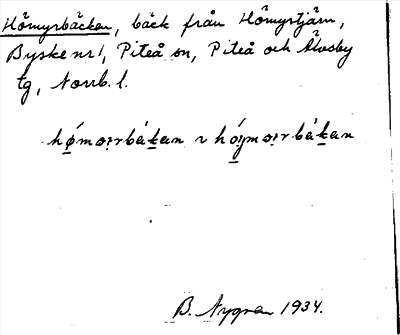 Hömyrbäcken, bäck från Hömyrtjärn,
Byske nr 1, Piteå sn, Piteå och Älvsby
tg, Norrb. l.
hǿmσɪrbákan ~ hóymσɪrbákan
B. Nygren 1934.